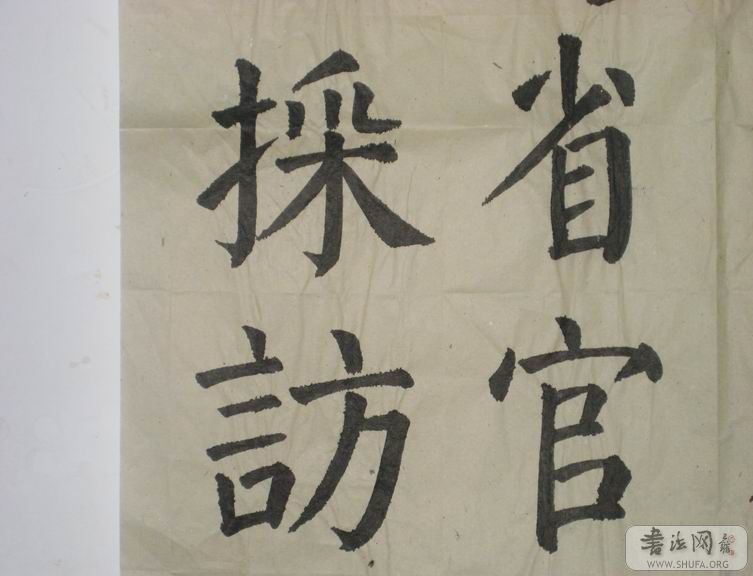 省官
採訪
书法网
WWW.SHUFA.ORG